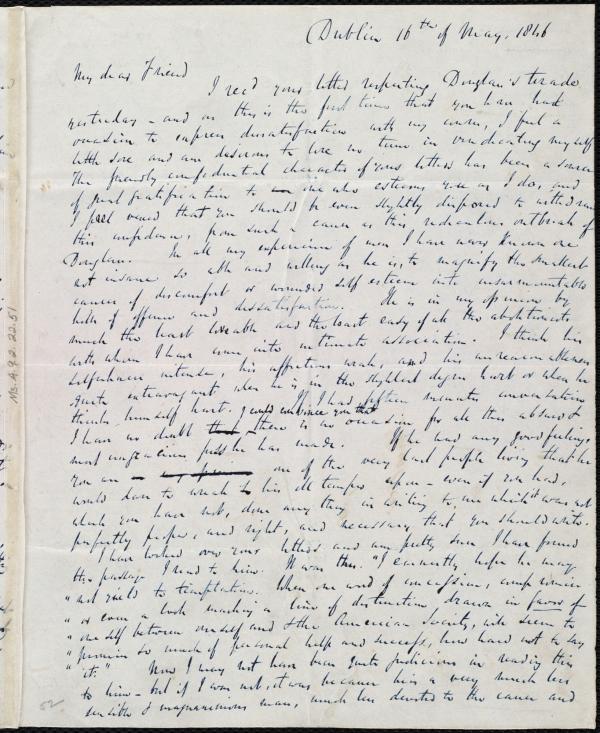 Dublin 16th of May, 1846
My dear Friend
I read your letter respecting Douglass's tirade
yesterday - and as this is the first time that you have had
occasion to express dissatisfaction with my course, I feel a
little sore and am desirous to lose no time in vindicating myself
The friendly confidential character of your letters has been a source
of great gratification to one who esteems you as I do, and
I feel vexed that you should be even slightly disposed to withdraw
this confidence, from such a cause as this ridiculous outbreak of
Douglass. In all my experience of men I have never known one
not insane so able and willing as he is, to magnify the smallest
causes of discomfort or wounded self esteem into insurmountable
hills of offence and dissatisfaction. He is in my opinion by
much the least loveable and the least easy of all the abolitionists
with whom I have come into intimate association. I think his
selfishness intense, his affections weak, and his unreasonableness
quite extravagant when he is in the slightest degree hurt or when he
thinks himself hurt. If I had fifteen minutes conversation
I have no doubt I could convince you that there is no occasion for all this absurd &
most ungracious fuss he has made. If he had any good feelings
you are one of the very last people living that he
would dare to wreak his ill temper upon - even if you had,
which you have not, done any thing in writing to me which it was not
perfectly proper, and right, and necessary that you should write.
I have looked over your letters and am pretty sure I have found
the passage I read to him. It was this. "I earnestly hope he may
"not yield to temptation. When one word of concession, compromise
"or even a look marking a line of distinction, drawn in favor of
"oneself between oneself and the American Society, will seem to
"promise so much of personal help and success, how hard not to say
"it." Now I may not have been quite judicious in reading this
to him - but if I was not, it was because he is a very much less
sensible & magnanimous man, much less devoted to the cause and
52
Ms.A.9.2. 22.51